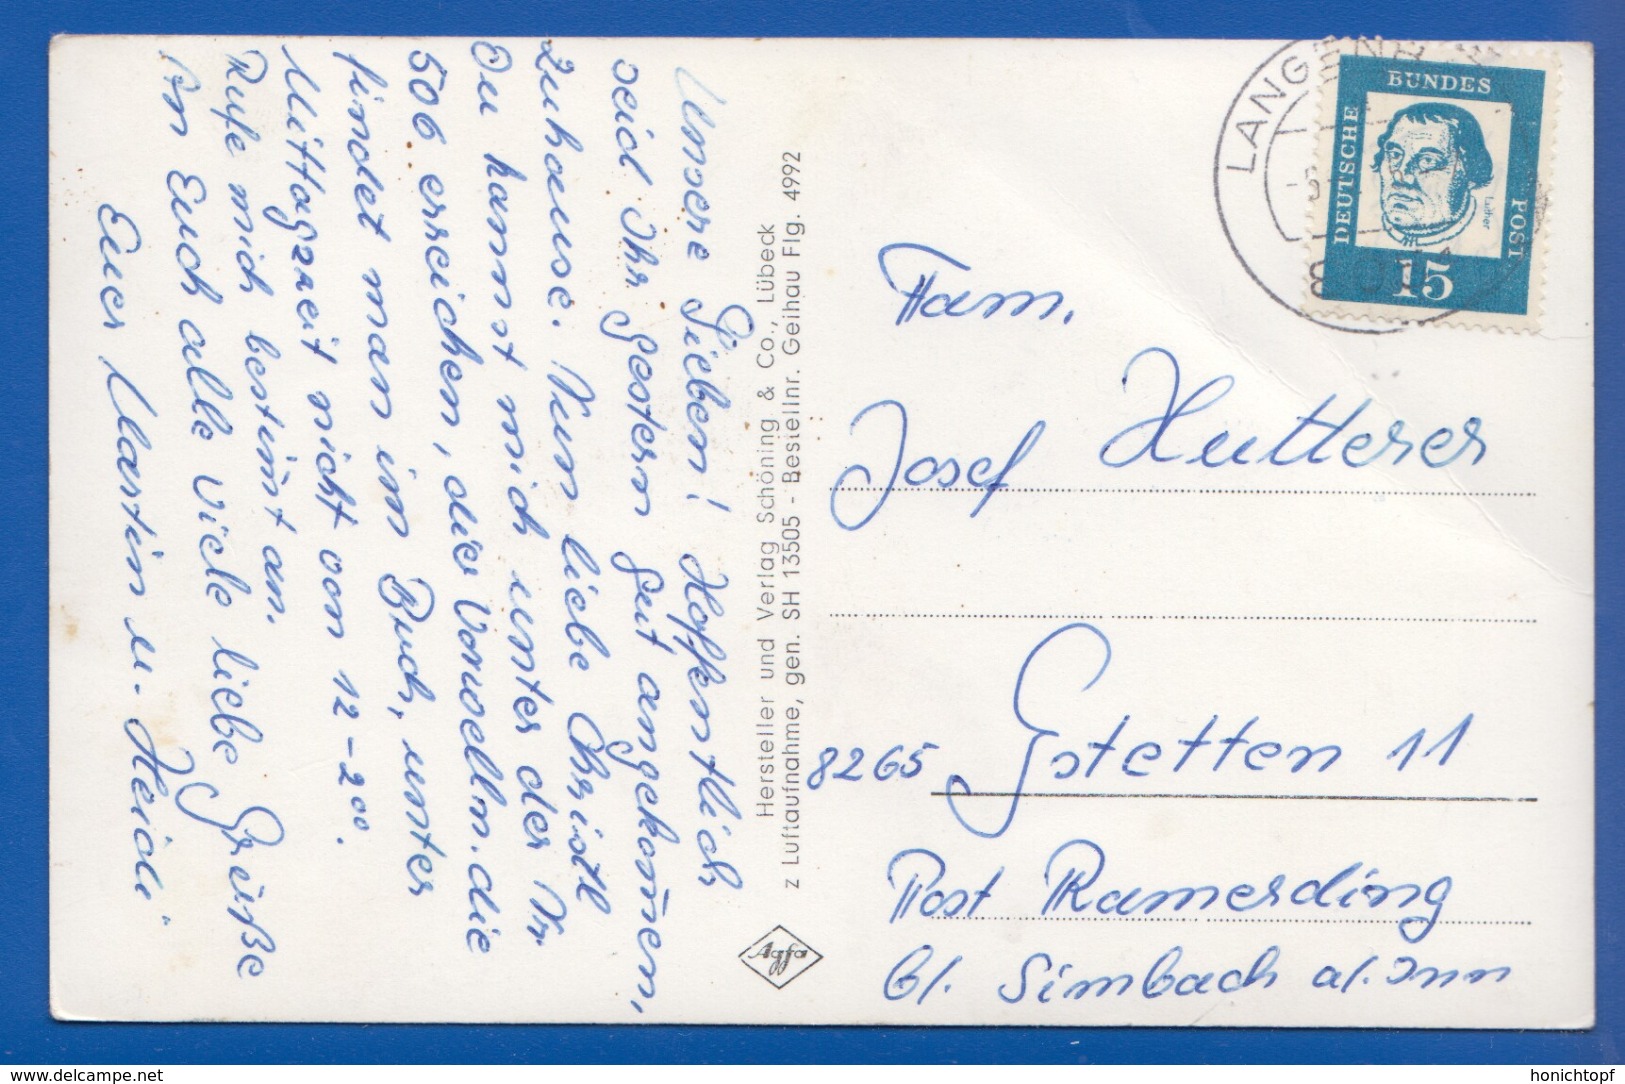 Unsere Lieben! Hoffentlich
seid Ihr gestern gut angekom̅en,
zuhause. Nun liebe Christl
Du kannst mich unter der Nr.
506 erreichen, die Vorwellm. die
findet man im Buch, unter
Mittagszeit nicht von 12-2⁰⁰.
Rufe mich bestim̅t an.
An Euch alle viele liebe Grüße
Euer Martin u. Heidi
Hersteller und Verlag Schöning & Co., Lübeck
z Luftaufnahme, gen. SH 13505 - Bestellnr. Geihau Flg. 4992
Agfa
DEUTSCHE
BUNDES
POST
Luther
15
LANGEN
Fam.
Josef Hutterer
8265 Gstetten 11
Post Ramerding
b/. Simbach a/. Inn
delcampe.net
honichtopf